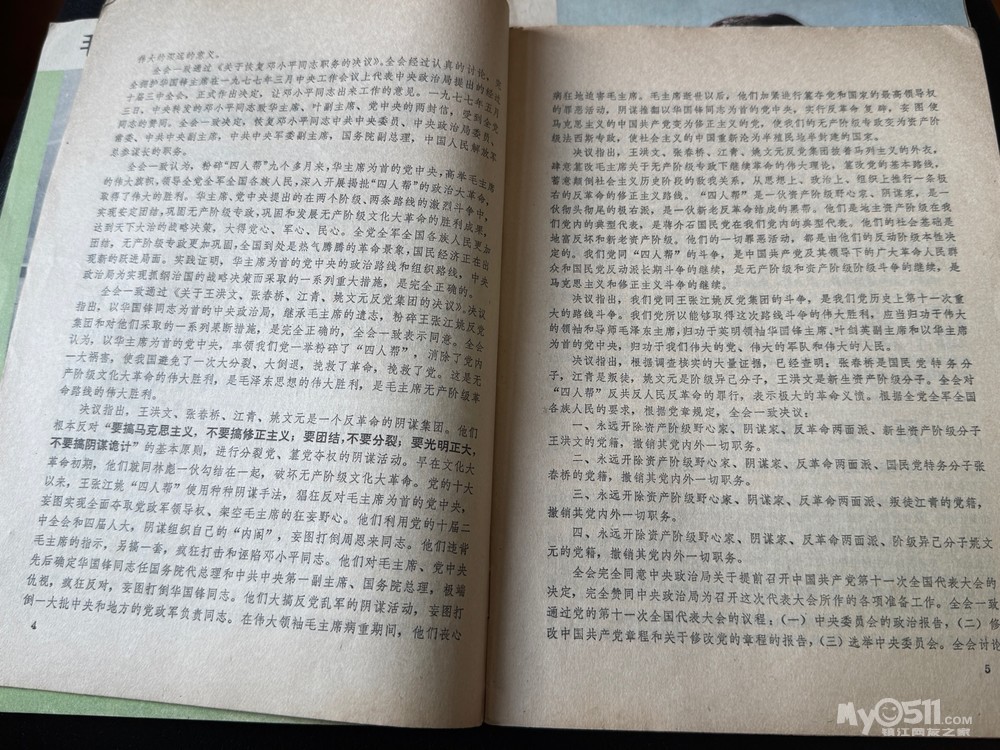 伟大的深远的意义。
全会一致通过《关于恢复邓小平同志职务的决议》。全会经过认真的讨论，完
全拥护华国锋主席在一九七七年三月中央工作会议上代表中央政治局提出的经过
十届三中全会，正式作出决定，让邓小平同志出来工作的意见。一九七七年五月
三日，中央转发的邓小平同志致华主席、叶副主席、党中央的两封信，受到全党
同志的赞同。全会一致决定，恢复邓小平同志中共中央委员、中央政治局委员、
常委、中共中央副主席、中共中央军委副主席，国务院副总理，中国人民解放军
总参谋长的职务。
全会一致认为，粉碎“四人帮”九个多月来，华主席为首的党中央，高举毛主席
的伟大旗帜，领导全党全军全国各族人民，深入开展揭批“四人帮”的政治大革命，
取得了伟大的胜利。华主席、党中央提出的在两个阶级、两条路线的激烈斗争中，
实现安定团结，巩固无产阶级专政，巩固和发展无产阶级文化大革命的胜利成果，
达到天下大治的战略决策，大得党心、军心、民心。全党全军全国各族人民更加
团结，无产阶级专政更加巩固，全国到处是热气腾腾的革命景象，国民经济正在出
现新的跃进局面。实践证明，华主席为首的党中央的政治路线和组织路线，中央
政治局为实现抓纲治国的战略决策而采取的一系列重大措施，是完全正确的。
全会一致通过《关于王洪文、张春桥、江青、姚文元反党集团的决议》。决议
指出，以华国锋同志为首的中央政治局，继承毛主席的遗志，粉碎王张江姚反党
集团和对他们采取的一系列果断措施，是完全正确的，全会一致表示同意。全会
认为，以华主席为首的党中央，率领我们党一举粉碎了“四人帮”，消除了党内
一大祸害，使我国避免了一次大分裂、大倒退，挽救了革命，挽救了党。这是无
产阶级文化大革命的伟大胜利，是毛泽东思想的伟大胜利，是毛主席无产阶级革
命路线的伟大胜利。
决议指出，王洪文、张春桥、江青、姚文元是一个反革命的阴谋集团。他们
根本反对“要搞马克思主义，不要搞修正主义；要团结，不要分裂；要光明正大，
不要搞阴谋诡计”的基本原则，进行分裂党、篡党夺权的阴谋活动。早在文化大
革命初期，他们就同林彪一伙勾结在一起，破坏无产阶级文化大革命。党的十大
以来，王张江姚“四人帮”使用种种阴谋手法，猖狂反对毛主席为首的党中央，
妄图实现全面夺取党政军领导权、架空毛主席的狂妄野心。他们利用党的十届二
中全会和四届人大，阴谋组织自己的“内阁”，妄图打倒周恩来同志。他们违背
毛主席的指示，另搞一套，疯狂打击和诬陷邓小平同志。他们对毛主席、党中央
先后确定华国锋同志任国务院代总理和中共中央第一副主席、国务院总理，极端
仇视，疯狂反对，妄图打倒华国锋同志。他们大搞反党乱军的阴谋活动，妄图打
倒一大批中央和地方的党政军负责同志。在伟大领袖毛主席病重期间，他们丧心
4
病狂地迫害毛主席。毛主席逝世以后，他们加紧进行篡夺党和国家的最高领导权
的罪恶活动，阴谋推翻以华国锋同志为首的党中央，实行反革命复辟，妄图使
马克思主义的中国共产党变为修正主义的党，使我们的无产阶级专政变为资产阶
级法西斯专政，使社会主义的中国重新沦为半殖民地半封建的国家。
决议指出，王洪文、张春桥、江青、姚文元反党集团披着马列主义的外衣，
肆意篡改毛主席关于无产阶级专政下继续革命的伟大理论，篡改党的基本路线，
蓄意颠倒社会主义历史阶段的敌我关系，从思想上、政治上、组织上推行一条极
右的反革命的修正主义路线。“四人帮”是一伙资产阶级野心家、阴谋家，是一
伙彻头彻尾的极右派，是一伙新老反革命结成的黑帮。他们是地主资产阶级在我
们党内的典型代表，是蒋介石国民党在我们党内的典型代表。他们的社会基础是
地富反坏和新老资产阶级。他们的一切罪恶活动，都是由他们的反动阶级本性决
定的。我们党同“四人帮”的斗争，是中国共产党及其领导下的广大革命人民群
众和国民党反动派长期斗争的继续，是无产阶级和资产阶级阶级斗争的继续，是
马克思主义和修正主义斗争的继续。
决议指出，我们党同王张江姚反党集团的斗争，是我们党历史上第十一次重
大的路线斗争。我们党所以能够取得这次路线斗争的伟大胜利，应当归功于伟大
的领袖和导师毛泽东主席，归功于英明领袖华国锋主席、叶剑英副主席和以华主席
为首的党中央，归功于我们伟大的党、伟大的军队和伟大的人民。
决议指出，根据调查核实的大量证据，已经查明，张春桥是国民党特务分
子，江青是叛徒，姚文元是阶级异己分子，王洪文是新生资产阶级分子。全会对
“四人帮”反共反人民反革命的罪行，表示极大的革命义愤。根据全党全军全国
各族人民的要求，根据党章规定，全会一致决议：
一、永远开除资产阶级野心家、阴谋家、反革命两面派、新生资产阶级分子
王洪文的党籍，撤销其党内外一切职务。
二、永远开除资产阶级野心家、阴谋家、反革命两面派、国民党特务分子张
春桥的党籍，撤销其党内外一切职务。
三、永远开除资产阶级野心家、阴谋家、反革命两面派、叛徒江青的党籍，
撤销其党内外一切职务。
四、永远开除资产阶级野心家、阴谋家、反革命两面派、阶级异己分子姚文
元的党籍，撤销其党内外一切职务。
全会完全同意中央政治局关于提前召开中国共产党第十一次全国代表大会的
决定，完全赞同中央政治局为召开这次代表大会所作的各项准备工作。全会一致
通过党的第十一次全国代表大会的议程：（一）中央委员会的政治报告，（二）修
改中国共产党章程和关于修改党的章程的报告，（三）选举中央委员会。全会讨论
5
My0511.COM
镇江网友之家